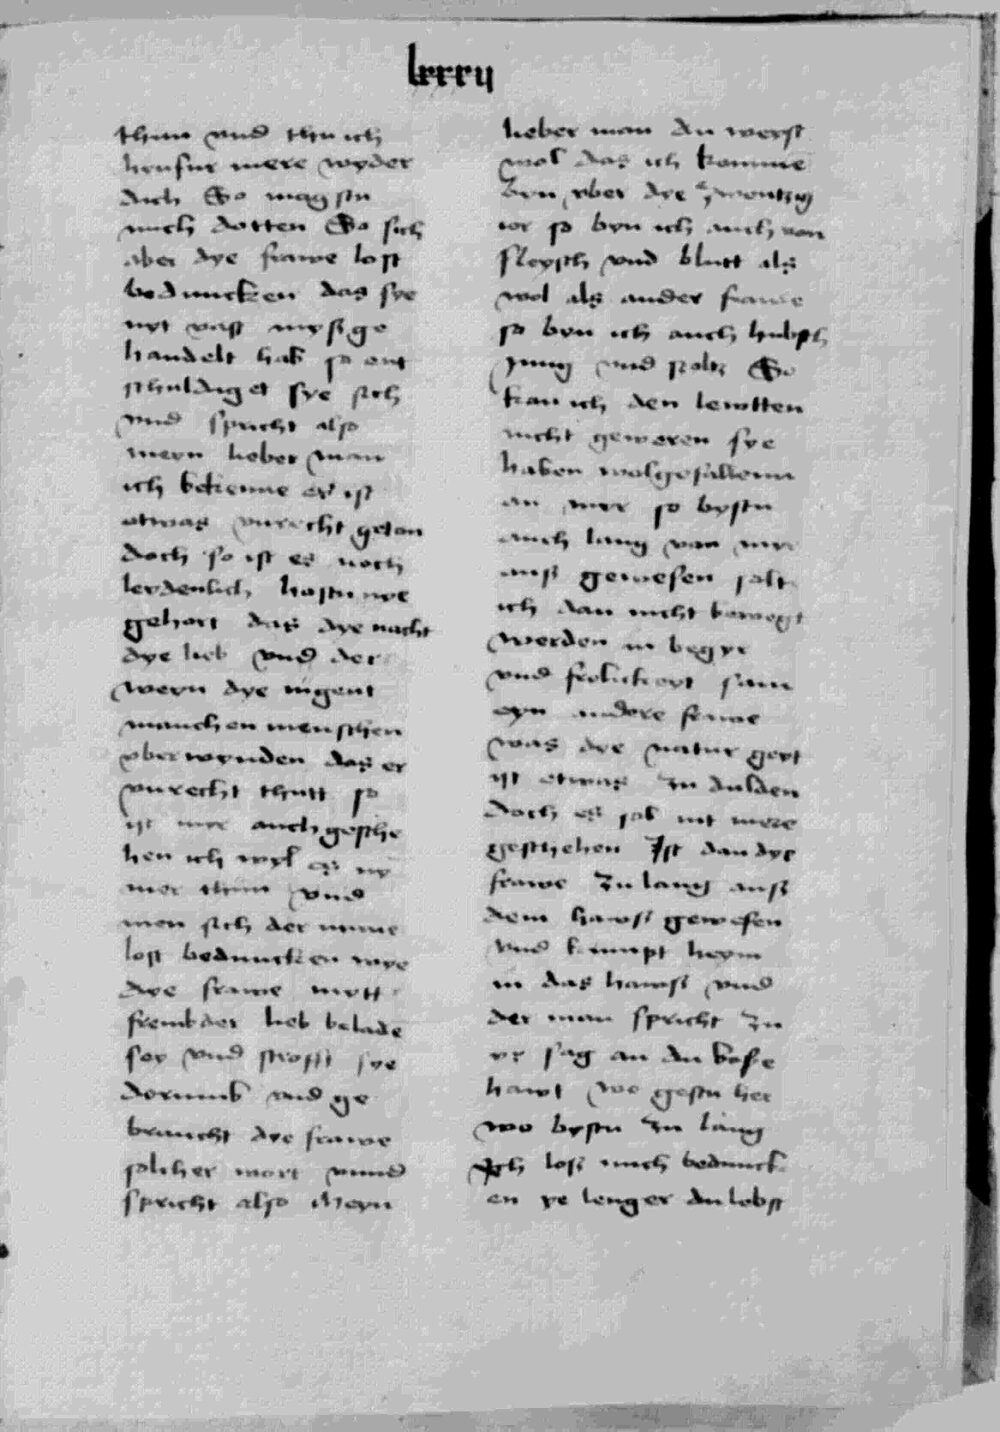 lxxxij
thun vnd thu ich
hynfur mere wyder
dich So magstu
mich dotten So sich
aber dye frawe lost
beduncken das sye
nyt vast mysige
handelt hab so ent
schuldiget sye sich
vnd spricht also
meyn lieber man
ich bekenne es ist
etwas vnrecht getan
doch so ist es noch
leydenlich hastu nye
gehort das dye nacht
dye lieb vnd der
weyn dye iugent
manchen menschen
vberwynden das er
vnrecht thutt so
ist mir auch gesche
hen ich wyl es ny
mer thun vnd
wen sich der man
lost beduncken wye
dye frawe mytt
frembder lieb belade
sey vnd strofft sye
dorumb vnd ge
braucht dye frawe
solicher wort vnnd
spricht also Meyn
lieber man du weyst
wol das ich komme
byn vber dye zwentzig
ior so byn ich auch von
fleysch vnd blutt als
wol als ander frawe
so byn ich auch hubsch
Jung vnd stoltz So
kan ich den lewtten
nicht geweren sye
haben wolgefallenn
an myr so bystu
auch lang von myr
auß gewesen solt
ich dan nicht bewegt
werden in begyr
vnd frolickeyt sam
eyn andere frawe
was dye natur geyt
ist etwas zu dulden
doch es sol nit mere
geschehen Ist dan dye
frawe zu lang auß
dem hawß gewesen
vnd kumpt heym
in das hawß vnd
der man spricht zu
yr sag an du boße
hawt wo gestu her
wo bystu zu lang
Ich loß mich bedunck
en ye lenger du lebst